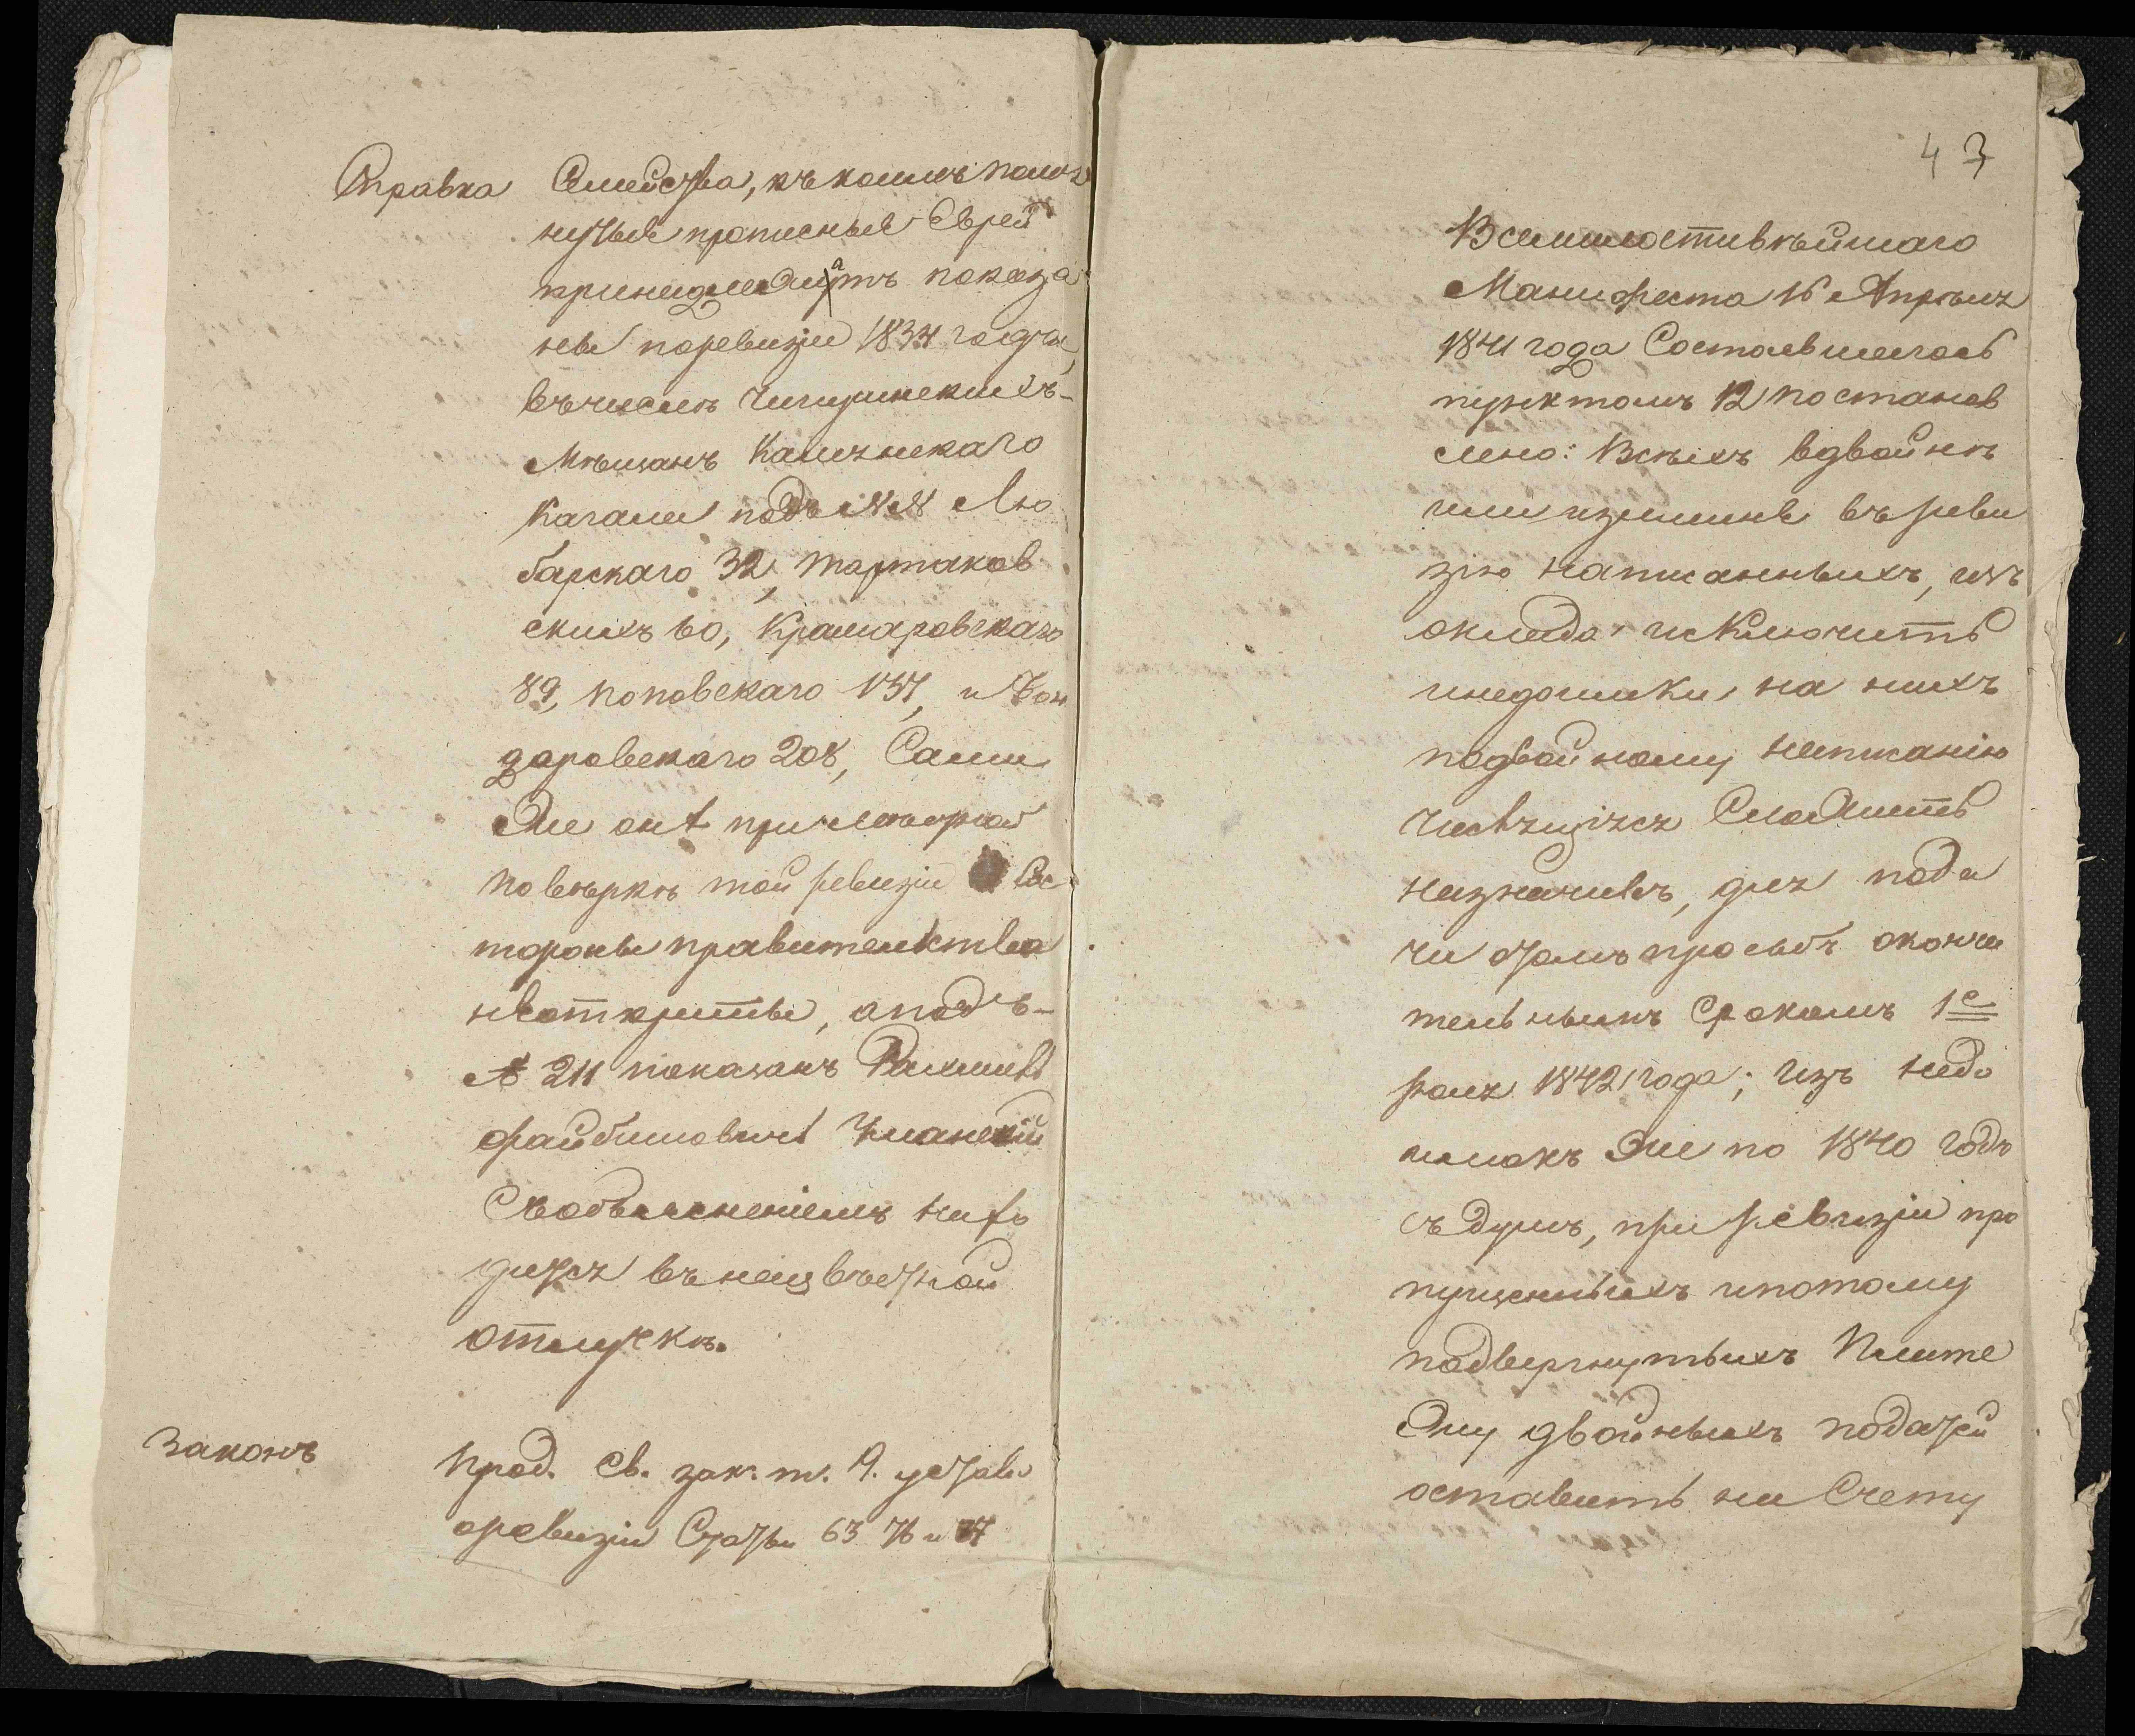 Справка Семейства, къ коимъ помя
нутые прописные Евреи
принадлежатъ показа
ны поревизіи 1834 года,
въчислѣ Чигиринскихъ-
Мѣщанъ
Кагала подъ №№ Лю
барскаго 32, Тартаков
скихъ 60, Крамаровскаго
89, Поповскаго 137, и Бон
даровскаго 208, Сами
же онѣ при
повѣркѣ той ревизіи Сос
тороны правительства
неоткриты, а подъ-
№ 211 показанъ
Файбишовичъ Уманскій
Собъясненіемъ нахо
дится въ неизвѣстной
отлучкѣ.
Законъ Прод. Св. зак. т. 9. устава
оревизіи Статьи 63 76 и 77
47
Всемилостивѣйшаго
Манифеста 16 Апрѣля
1841 года Состоявшагось
пунктомъ 12 постанов
лено: Всѣхъ вдвойнѣ
или излишнѣ въ реви
зію написанныхъ, изъ
оклада исключить
инедоимки на нихъ
подвойному написанію
числящіяся Сложить
назначивъ, для пода
чи отомъ просьбъ оконча
тельнымъ Срокомъ 1е
1842 года; изъ недо
имокъ же по 1840 годъ
съ душъ, при ревизіи про
пущенныхъ ипотому
подвергнутыхъ Плате
жу двойныхъ податей
оставить на Счету